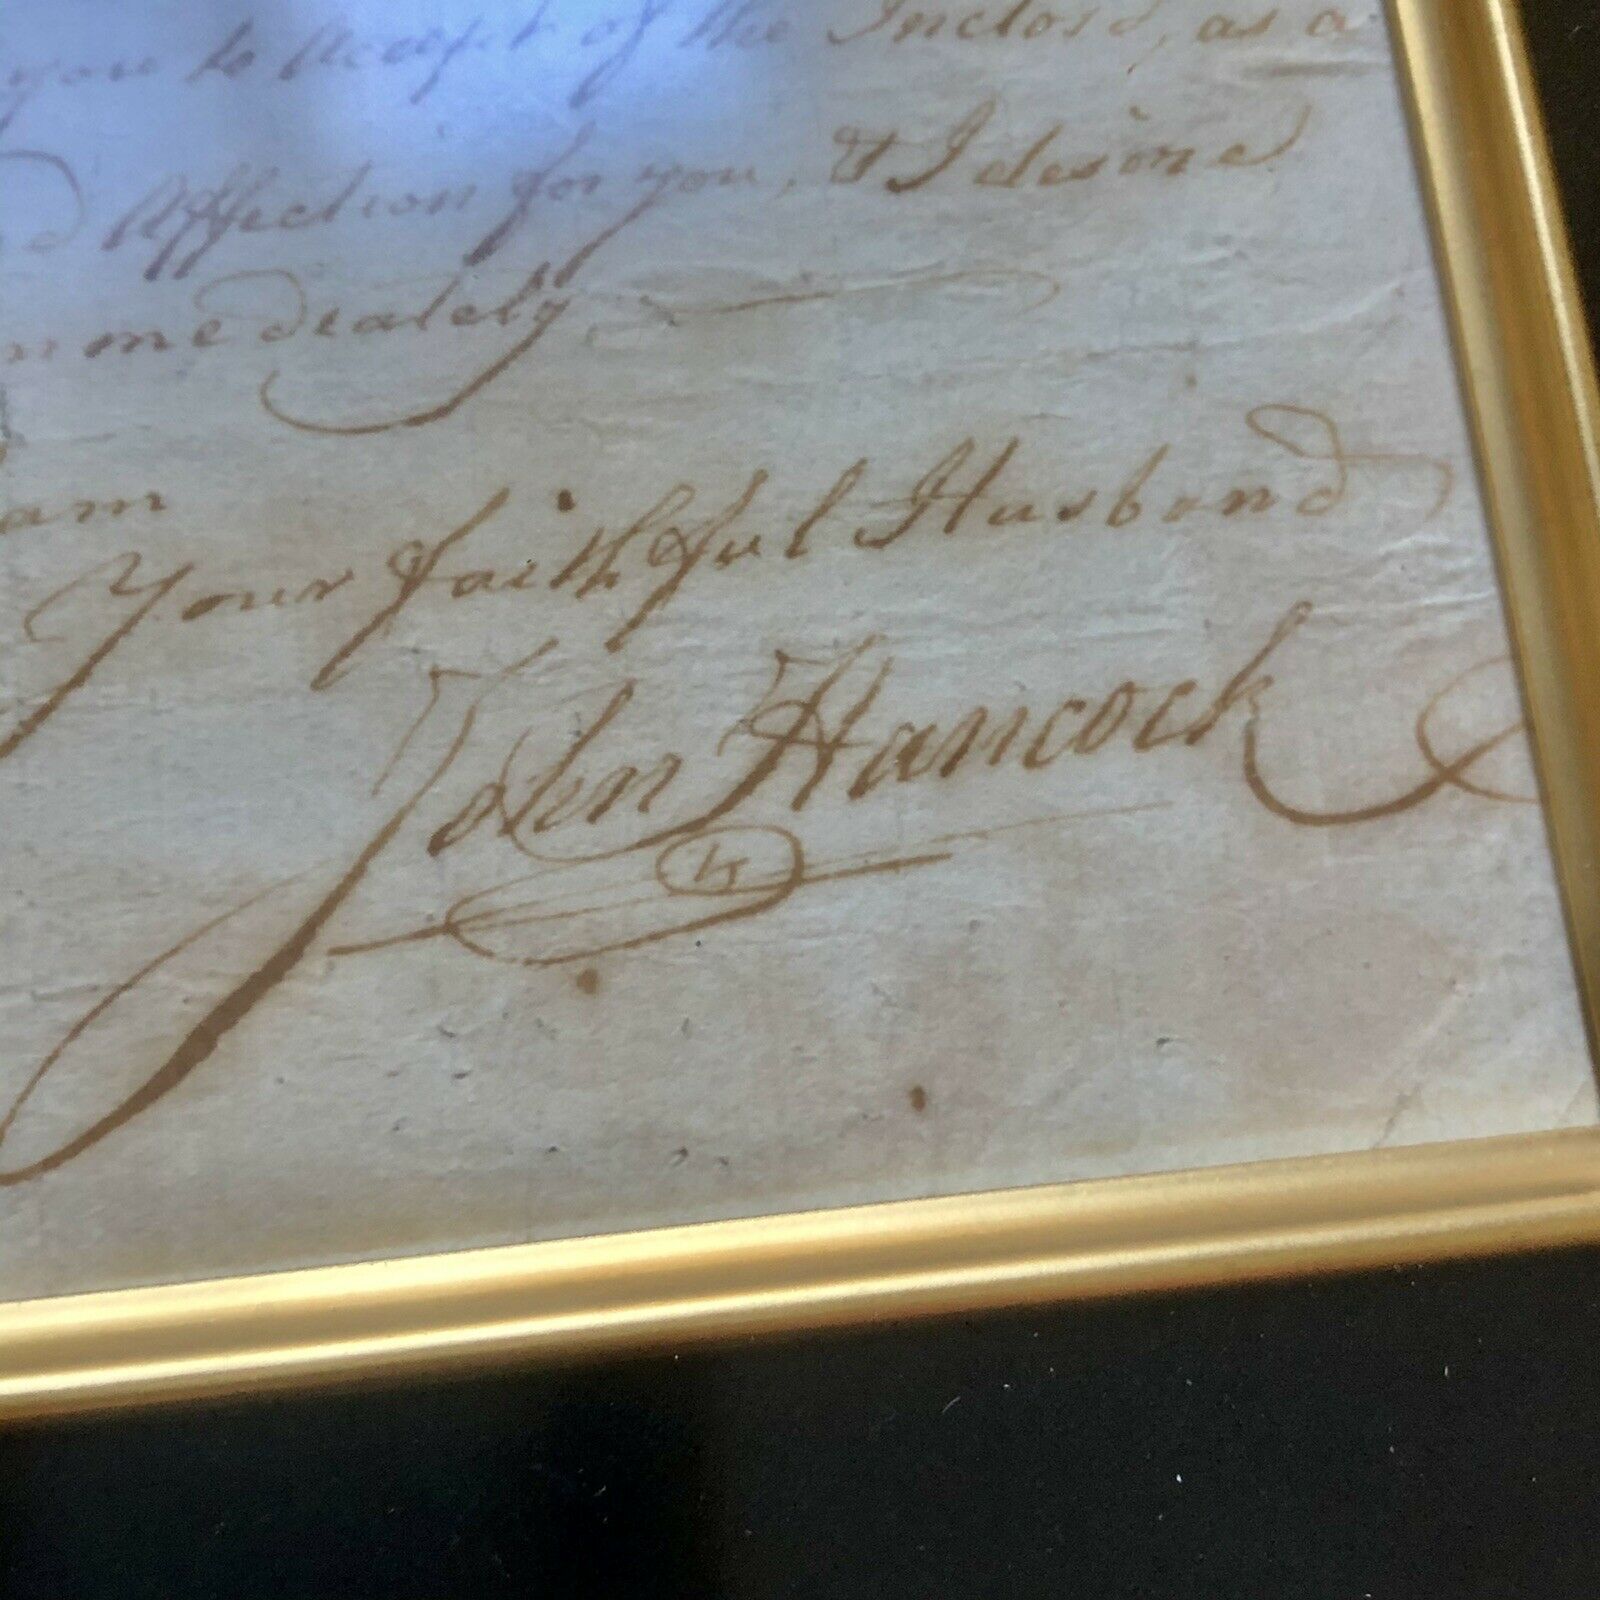 you to Accept of the Inclos'd, as a
Affection for you, & I desire
immediately
am
Your faithful Husband
John Hancock